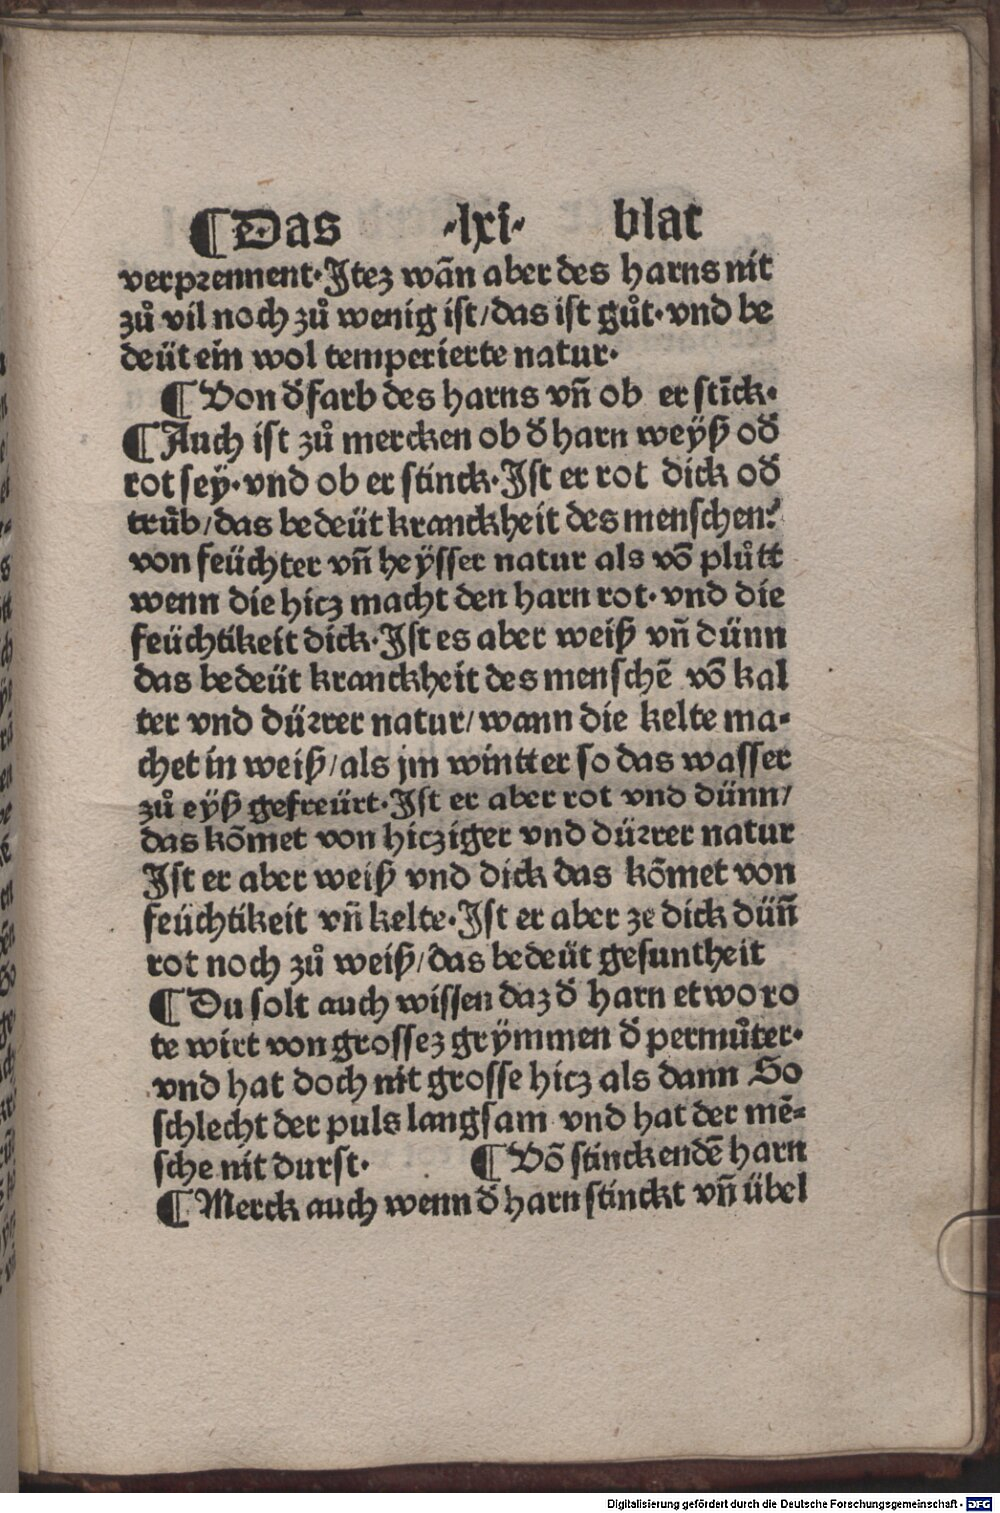 ¶Das ·lxi· blat
verprennent·Jtez wān aber des harns nit
zů vil noch zů wenig ist/das ist gůt·vnd be
deüt ein wol temperierte natur·
¶Von d̄ farb des harns vn̄ ob er stīck·
¶Auch ist zů mercken ob d̄ harn weÿß od̄
rot seÿ·vnd ob er stinck·Jst er rot dick od̄
trůb/das bedeüt kranckheit des menschen:
von feüchter vn̄ heÿsser natur als vō plůtt
wenn die hicz macht den harn rot·vnd die
feüchtikeit dick·Jst es aber weiß vn̄ dünn
das bedeüt kranckheit des menschē vō kal
ter vnd dürrer natur/wann die kelte ma⸗
chet in weiß/als jm wintter so das wasser
zů eÿß gefreürt·Jst er aber rot vnd dünn/
das kōmet von hicziger vnd dürrer natur
Jst er aber weiß vnd dick das kōmet von
feüchtikeit vn̄ kelte·Jst er aber ze dick dün̄
rot noch zů weiß/das bedeüt gesuntheit
¶Du solt auch wissen daz d̄ harn etwo ro
te wirt von grossez grÿmmen d̄ permůter·
vnd hat doch nit grosse hicz als dann So
schlecht der puls langsam vnd hat der mē⸗
sche nit durst· ¶Vō stinckendē harn
¶Merck auch wenn d̄ harn stinckt vn̄ übel
Digitalisierung gefördert durch die Deutsche Forschungsgemeinschaft - DFG